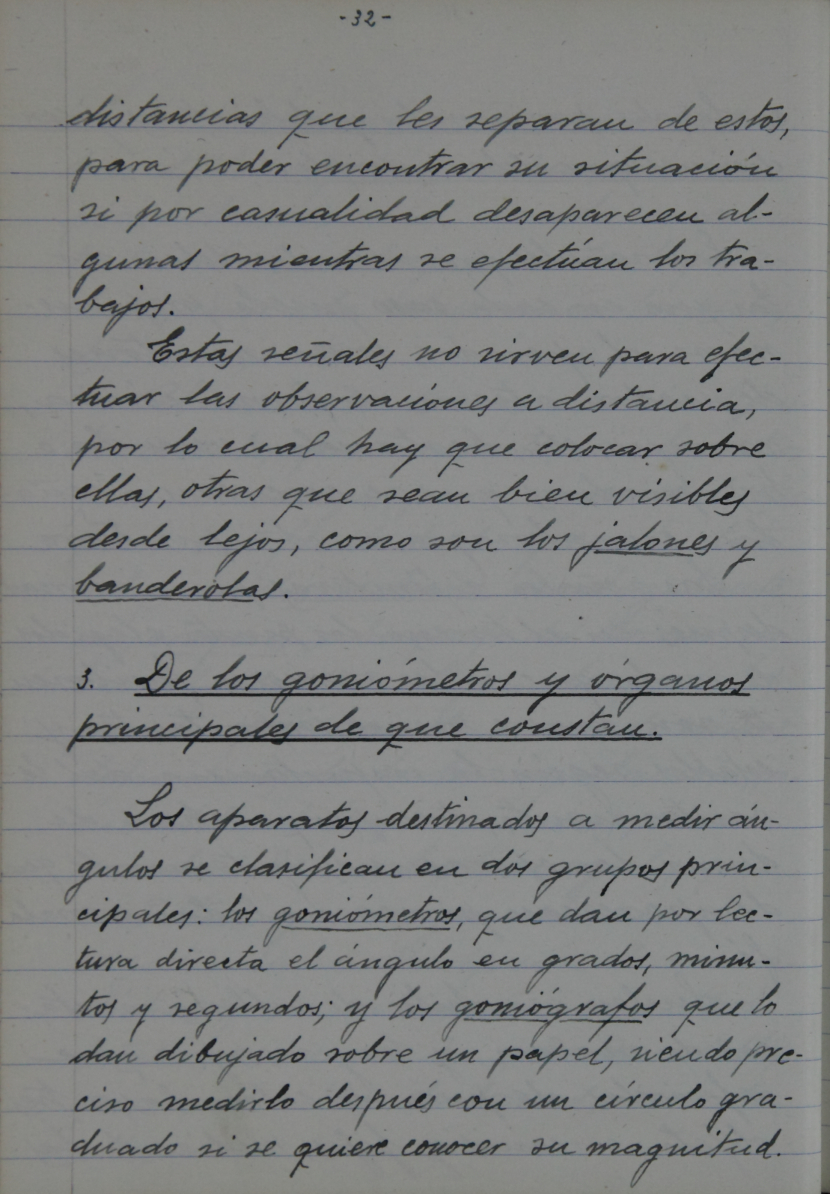 -32-
distancias que les separan de estos,
para poder encontrar su situación
si por casualidad desaparecen al-
gunas mientras se efectúan los tra-
bajos.
Estas señales no sirven para efec-
tuar las observaciones a distancia,
por lo cual hay que colocar sobre
ellas, otras que sean bien visibles
desde lejos, como son los jalones y
banderolas.
3. De los goniómetros y órganos
principales de que constan.
Los aparatos destinados a medir án-
gulos se clasifican en dos grupos prin-
cipales: los goniómetros, que dan por lec-
tura directa el ángulo en grados, minu-
tos y segundos; y los goniógrafos que lo
dan dibujado sobre un papel, siendo pre-
ciso medirlo después con un círculo gra-
duado si se quiere conocer su magnitud.